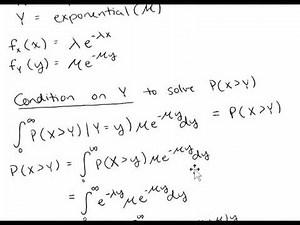 Y = exponential(μ)
fₓ(x) = λe^{-λx}
f_Y(y) = μe^{-μy}
Condition on Y to solve P(X>Y)
∫₀^∞ P(X>Y)|Y=y) μe^{-μy}dy = P(X>Y)
P(X>Y) = ∫₀^∞ P(X>y) μe^{-μy}dy
= ∫₀^∞ e^{-λy} μe^{-μy}dy